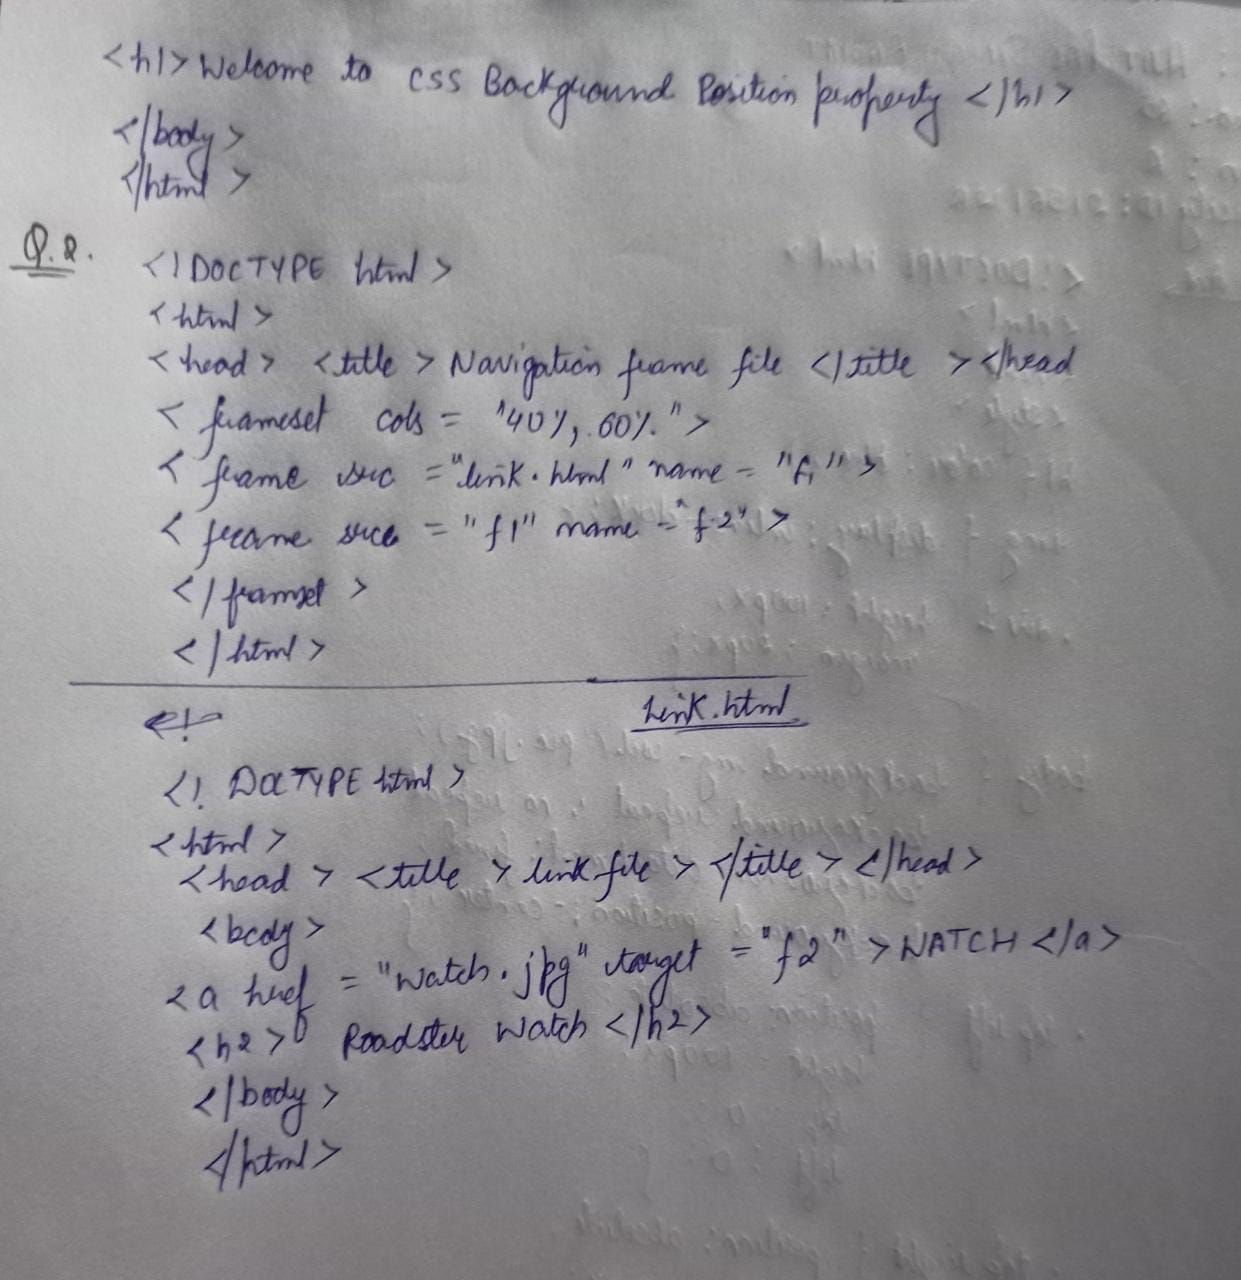 <h1> Welcome to CSS Background Position property </h1>
</body>
</html>
Q.2. <! DOCTYPE html>
<html>
<head> <title> Navigation frame file </title> </head
<frameset cols = "40%, 60%.">
<frame src = "link.html" name = "f1">
<frame src = "f1" name = "f2">
</framset>
</html>
link.html
<! DOCTYPE html>
<html>
<head> <title> link file > </title> </head>
<body>
<a href = "watch.jpg" target = "f2" > WATCH </a>
<h2> Roadster Watch </h2>
</body>
</html>